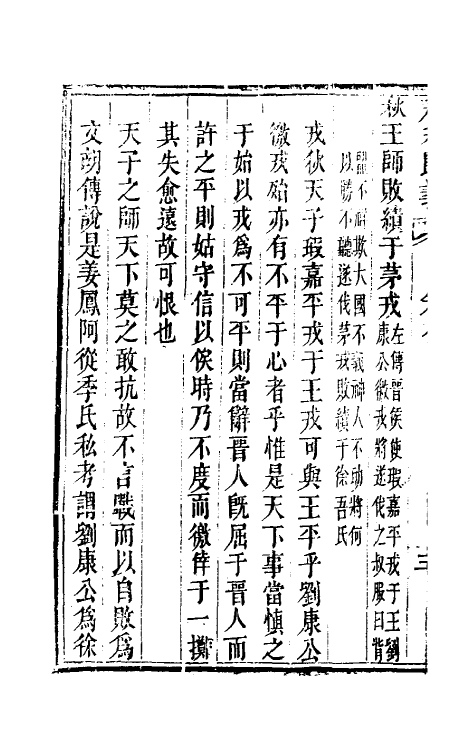 秋王師敗績于茅戎左傳晉侯使瑕嘉平戎于王劉
康公徼戎將遂伐之叔服曰背
盟不祥欺大國不義神人不助將何
以勝不聽遂伐茅戎敗績于徐吾氏
戎狄天子瑕嘉平戎于王戎可與王平乎劉康公
徼戎殆亦有不平于心者乎惟是天下事當慎之
于始以戎為不可平則當辭晉人旣屈于晉人而
許之平則姑守信以俟時乃不度而徼倖于一擲
其失愈遠故可恨也
天子之師天下莫之敢抗故不言戰而以自敗為
文胡傳說是姜鳳阿從季氏私考謂劉康公為徐